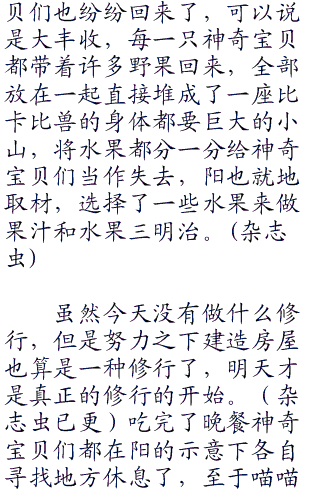 贝们也纷纷回来了，可以说
是大丰收，每一只神奇宝贝
都带着许多野果回来，全部
放在一起直接堆成了一座比
卡比兽的身体都要巨大的小
山，将水果都分一分给神奇
宝贝们当作失去，阳也就地
取材，选择了一些水果来做
果汁和水果三明治。(杂志
虫)
虽然今天没有做什么修
行，但是努力之下建造房屋
也算是一种修行了，明天才
是真正的修行的开始。（杂
志虫已更）吃完了晚餐神奇
宝贝们都在阳的示意下各自
寻找地方休息了，至于喵喵